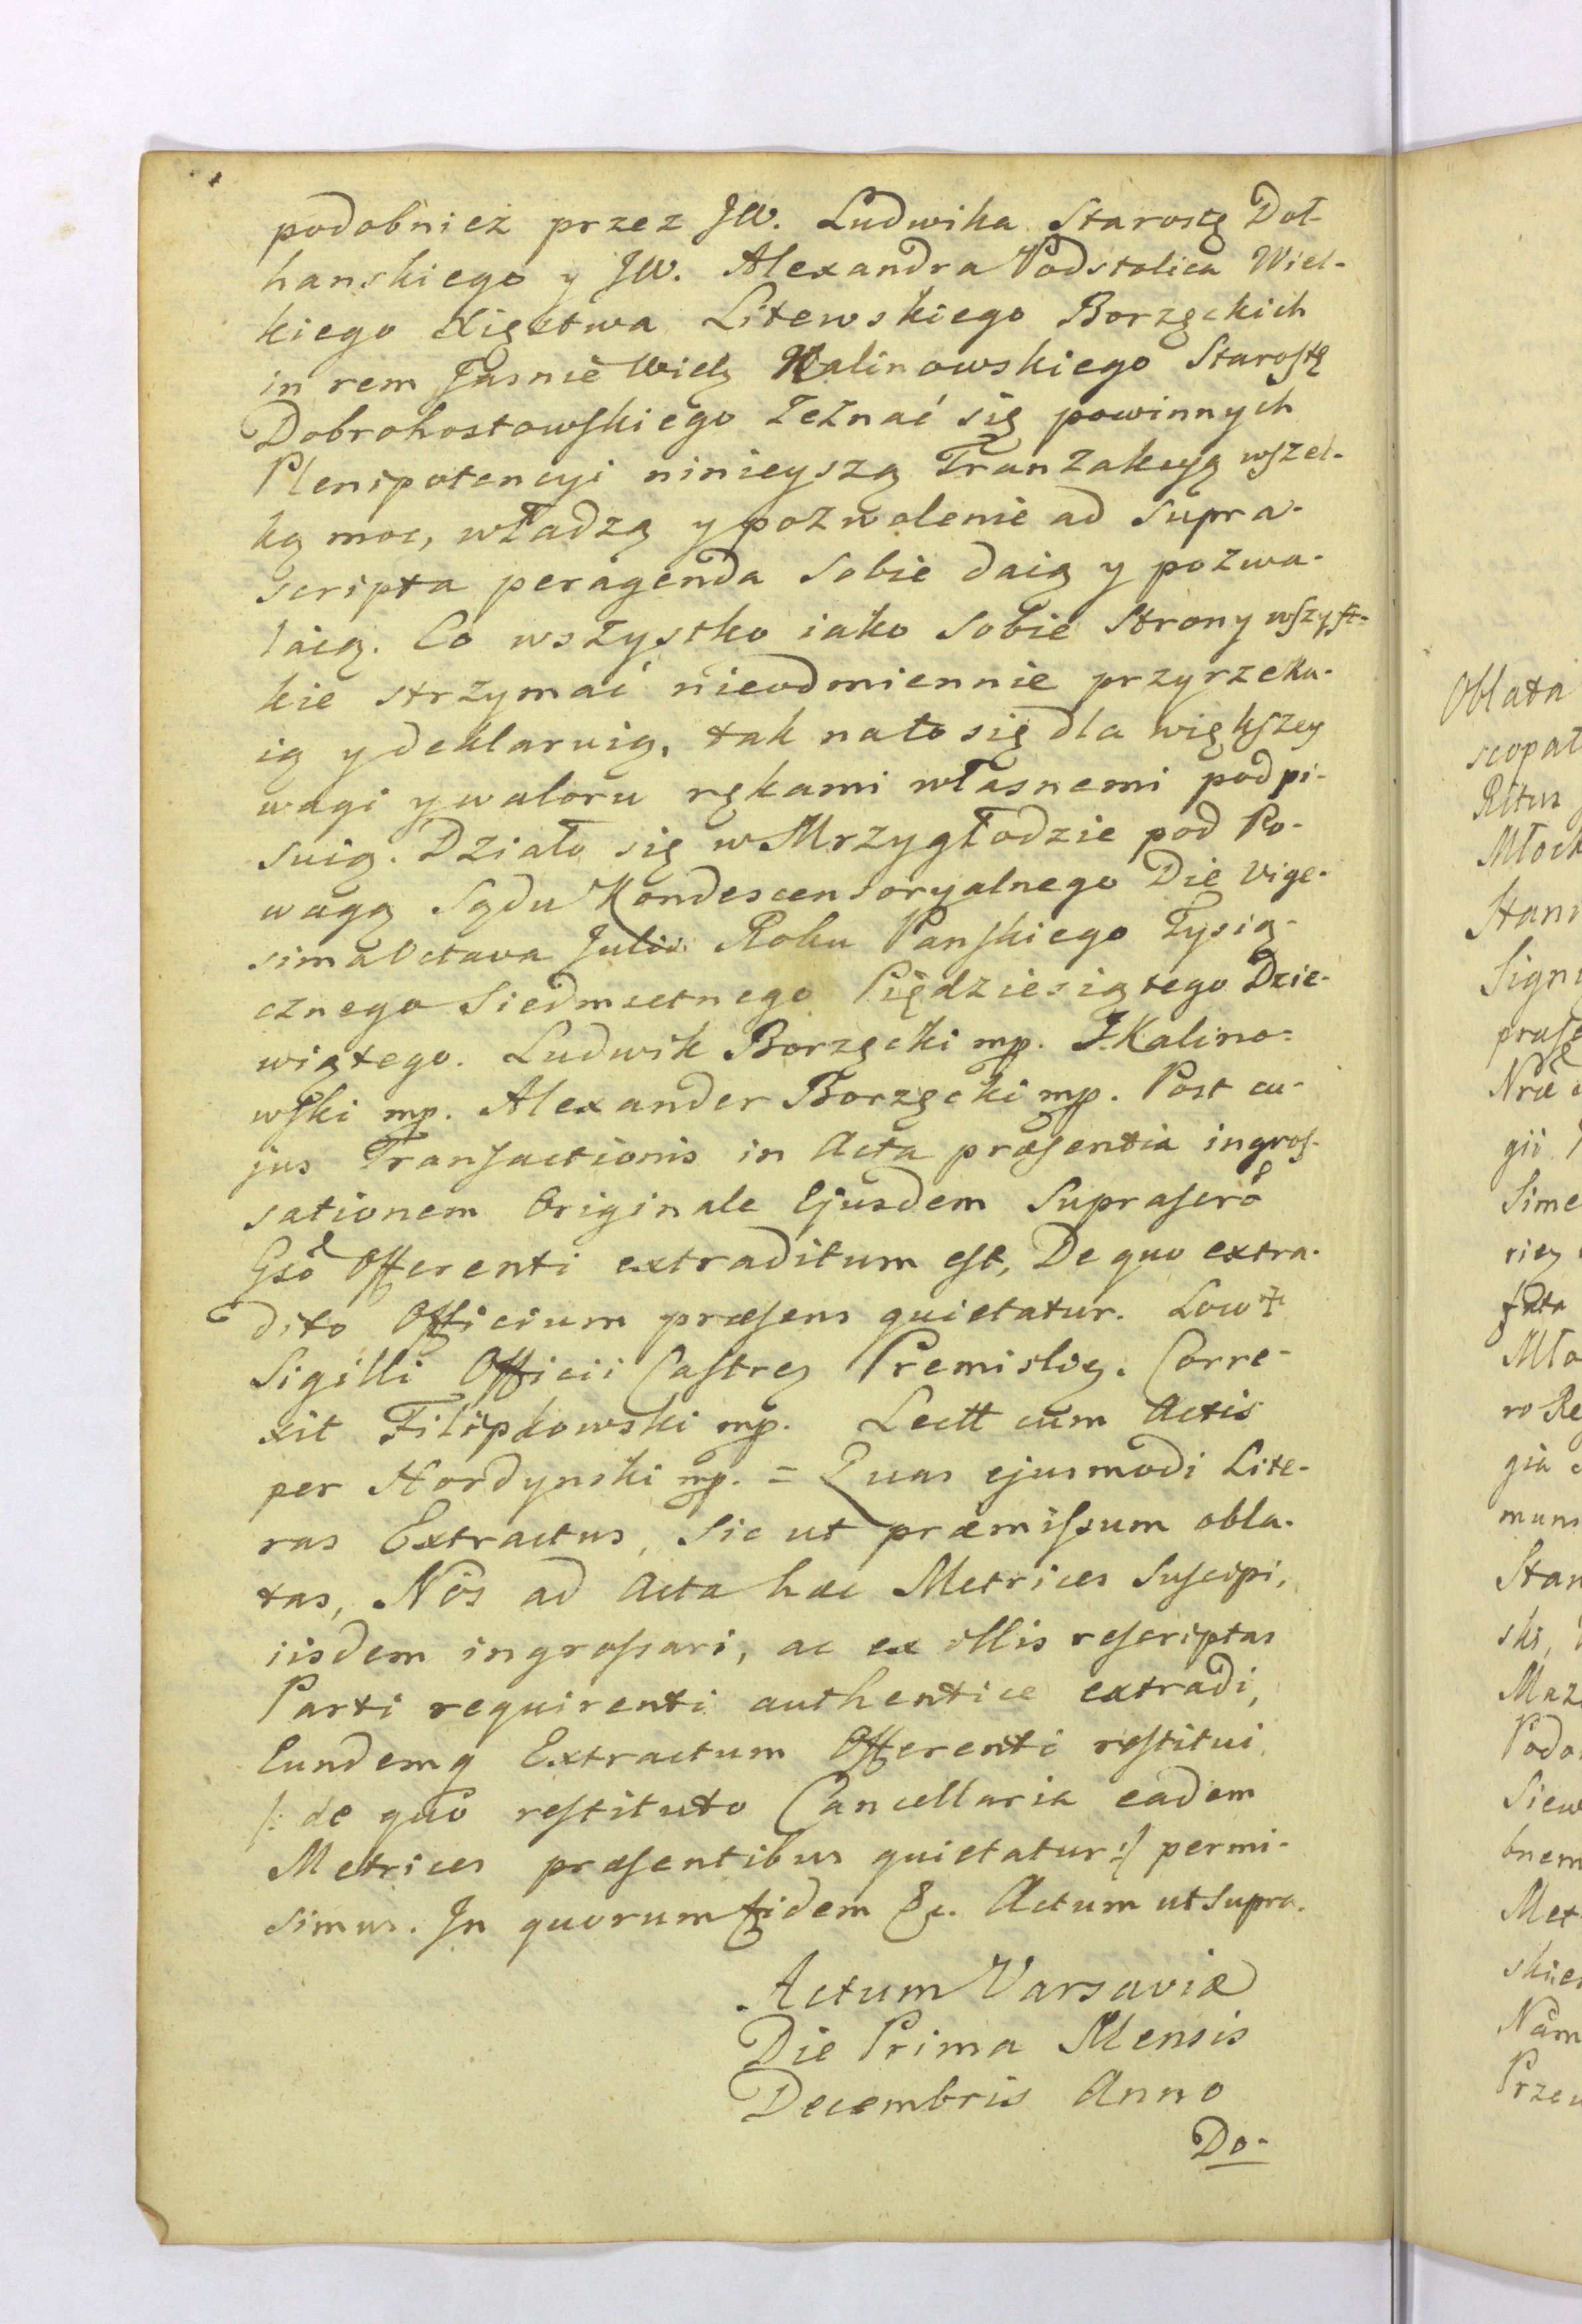 podobnież przez JW. Ludwika Starostę Doł-
hanskiego y JW. Alexandra Podstolica Wiel-
kiego Xięstwa Litewskiego Borzęckich
in rem Jasnie Wielg Kalinowskiego Starostę
Dobrohostowskiego Zeznać się powinnych
Plenipotencyi ninieyszą Tranzakcyą wszel-
ką moc, władzą y pozwolenie ad supra-
scripta peragenda sobie daią y pozwa-
laią. Co wszystko iako sobie strony wszyst-
kie strzymać nieodmiennie przyrzeka-
ią y deklaruią, tak na to się dla większey
wagi y waloru rękami własnemi podpi-
suią. Działo się w Mrzygłodzie pod Po-
wagą Sądu Kondescensoryalnego Die Vige-
sima Octava Julii Roku Panskiego Tysią-
cznego Siedmsetnego Piędziesiątego Dzie-
wiątego. Ludwik Borzęcki mp. J. Kalino-
wski mp. Alexander Borzęcki mp. Post cu-
jus Transactionis in Acta præsentia ingros-
sationem Originale Ejusdem Suprascrō
Gsō Offerenti extraditum est, De quo extra-
dito Officium præsens quietatur. Low +
Sigilli Officii Castreg Premislieg. Corre-
xit Filipkowski mp. Lectt cum Actis
per Hordynski mp. = Quas ejusmodi Lite-
ras Extractus, Sic ut præmissum obla-
tas, Nos ad Acta hæc Metrices Suscipi,
iisdem ingrossari, ac ex illis rescriptas
Parti requirenti authentice extradi,
Eundemq Extractum Offerenti restitui
/: de quo restituto Cancellaria eadem
Metrices præsentibus quietatur :/ permi-
simus. In quorum fidem &c. Actum ut supra.
Actum Varsaviæ
Die Prima Mensis
Decembris Anno
Do-
Oblata
scopat
Ritus
Młock
Stani
Sign
præse
Nræ
gii
Sime
rieg
fata
Mło
ro Re
gia
muni
Stan
ski,
Maz
Podo
Siew
bnem
Met
skie
Nam
Przew